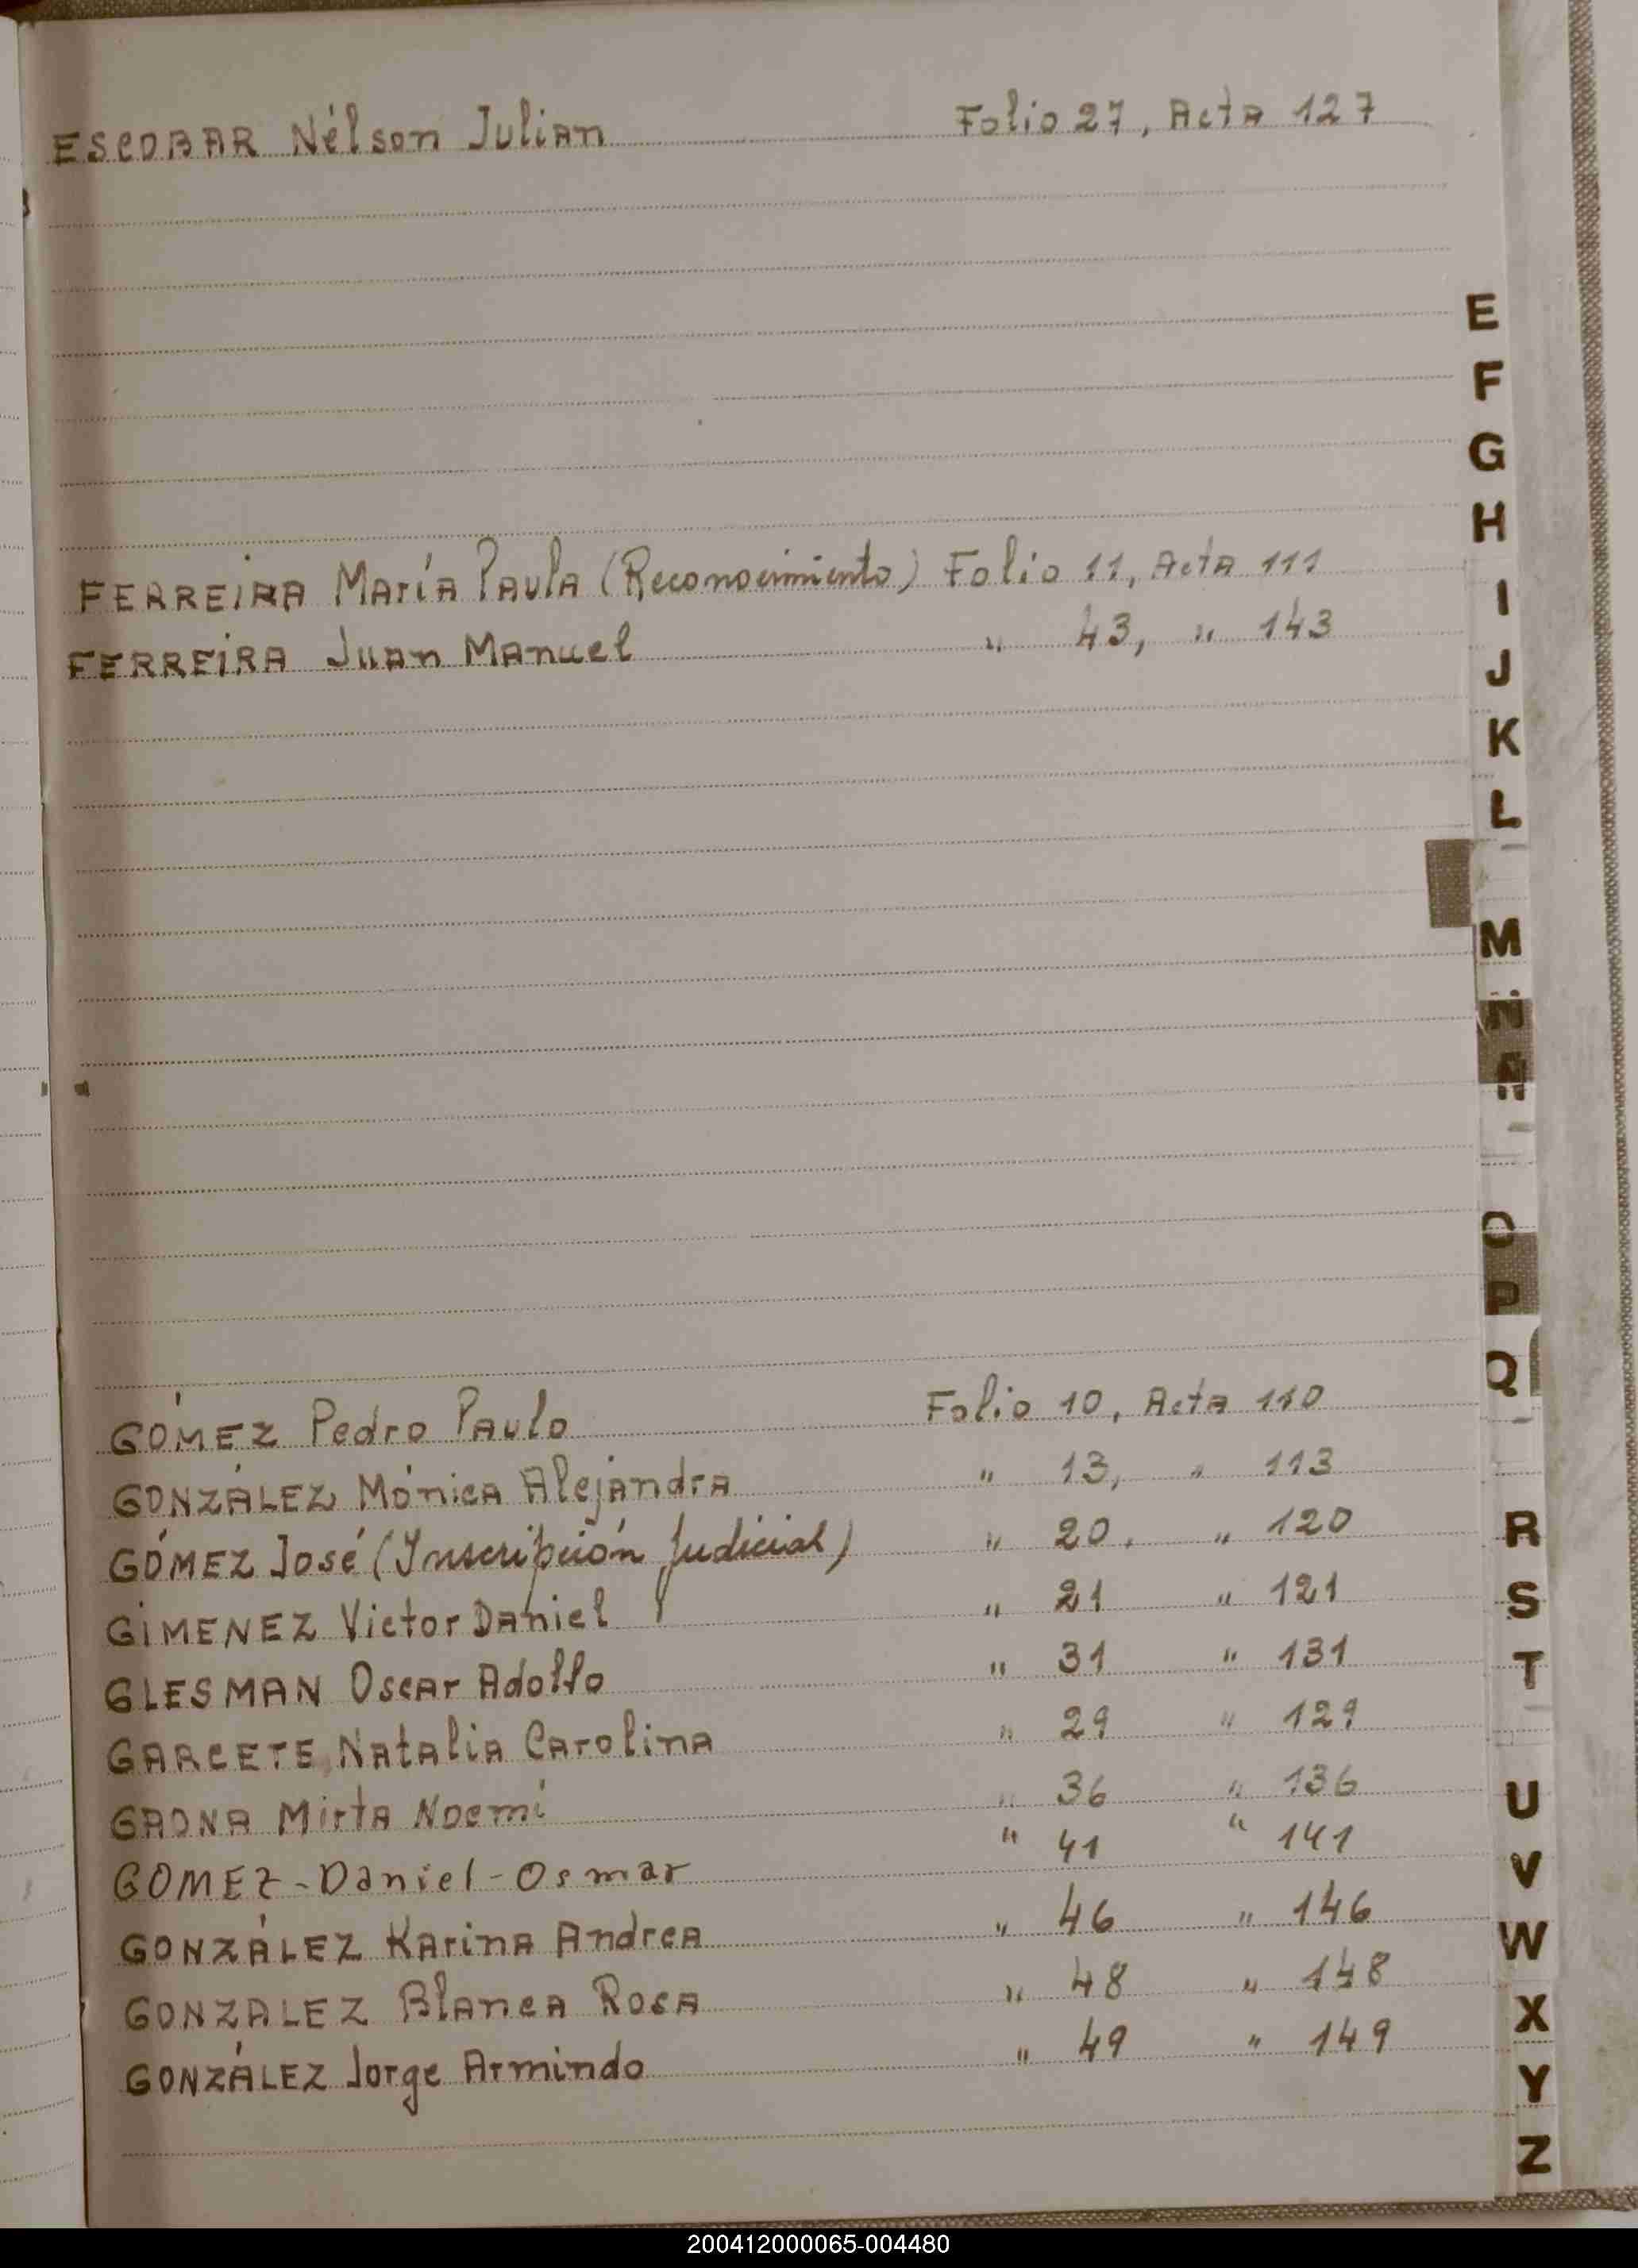 ESCOBAR Nélson Julian Folio 27, Acta 127
FERREIRA María Paula (Reconocimiento) Folio 11, Acta 111
FERREIRA Juan Manuel " 43, " 143
GÓMEZ Pedro Paulo Folio 10, Acta 110
GONZÁLEZ Mónica Alejandra " 13, " 113
GÓMEZ José (Inscripción Judicial) " 20, " 120
GIMENEZ Victor Daniel " 21 " 121
GLESMAN Oscar Adolfo " 31 " 131
GARCETE, Natalia Carolina " 29 " 129
GAONA Mirta Noemí " 36 " 136
GOMEZ-Daniel-Osmar " 41 " 141
GONZÁLEZ Karina Andrea " 46 " 146
GONZALEZ Blanca Rosa " 48 " 148
GONZÁLEZ Jorge Armindo " 49 " 149
E
F
G
H
I
J
K
L
M
N
Ñ
O
P
Q
R
S
T
U
V
W
X
Y
Z
200412000065-004480